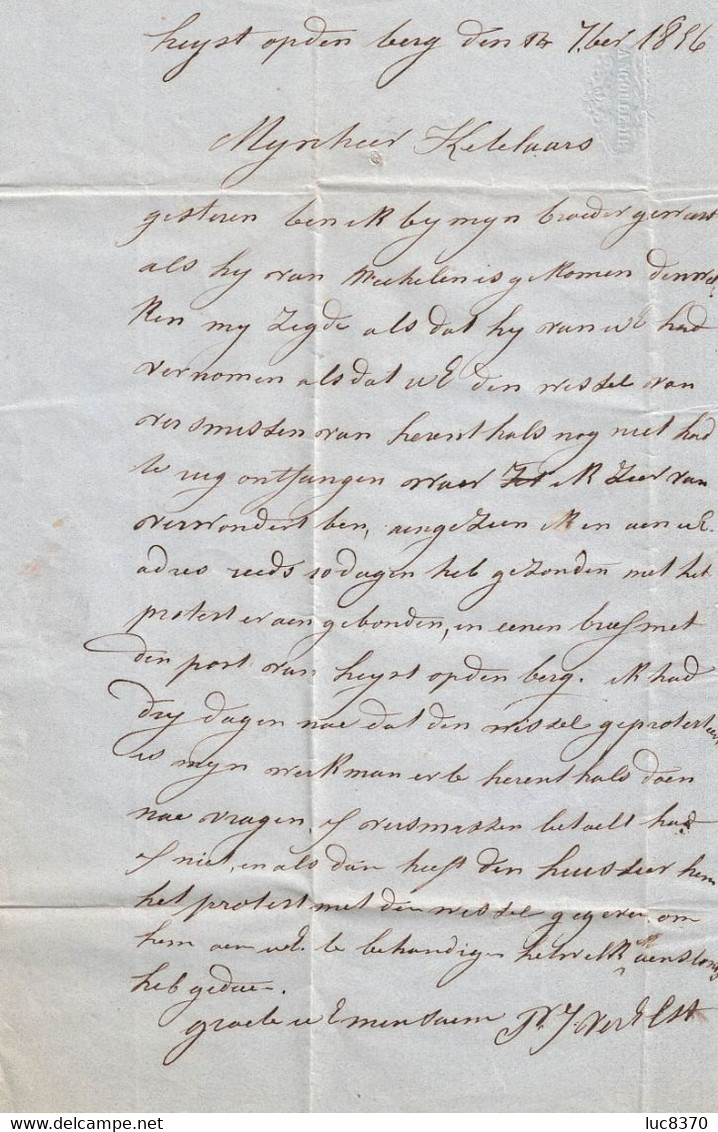 heyst opden berg den 7.ber 1856
Mynheer Ketelaars
gisteren ben ik by myn broeder geweest
als hy van Mechelen is gekomen denwel,
ken my zegde als dat hy van uE had
vernomen als dat uE den wissel van
versmissen van herenthals nog niet had
te rug ontfangen waer ik zeer van
verwondert ben, aengezien ik en aen uE.
adres reeds 10 dagen heb gezonden met het
protest er aen gebonden, in eenen brief met
den post van heyst opden berg. ik had
dry dagen nae dat den wissel geprotesteer,
is myn werkman er te herenthals doen
nae vragen, of versmissen betaelt had
of niet, en als dan heeft den huissier hem
het protest met den wissel gegeven om
hem aen uE. te behandigen hetwelk ik
heb gedaen.
groete uE minsaem P. J. Verelst
www.delcampe.net
luc8370